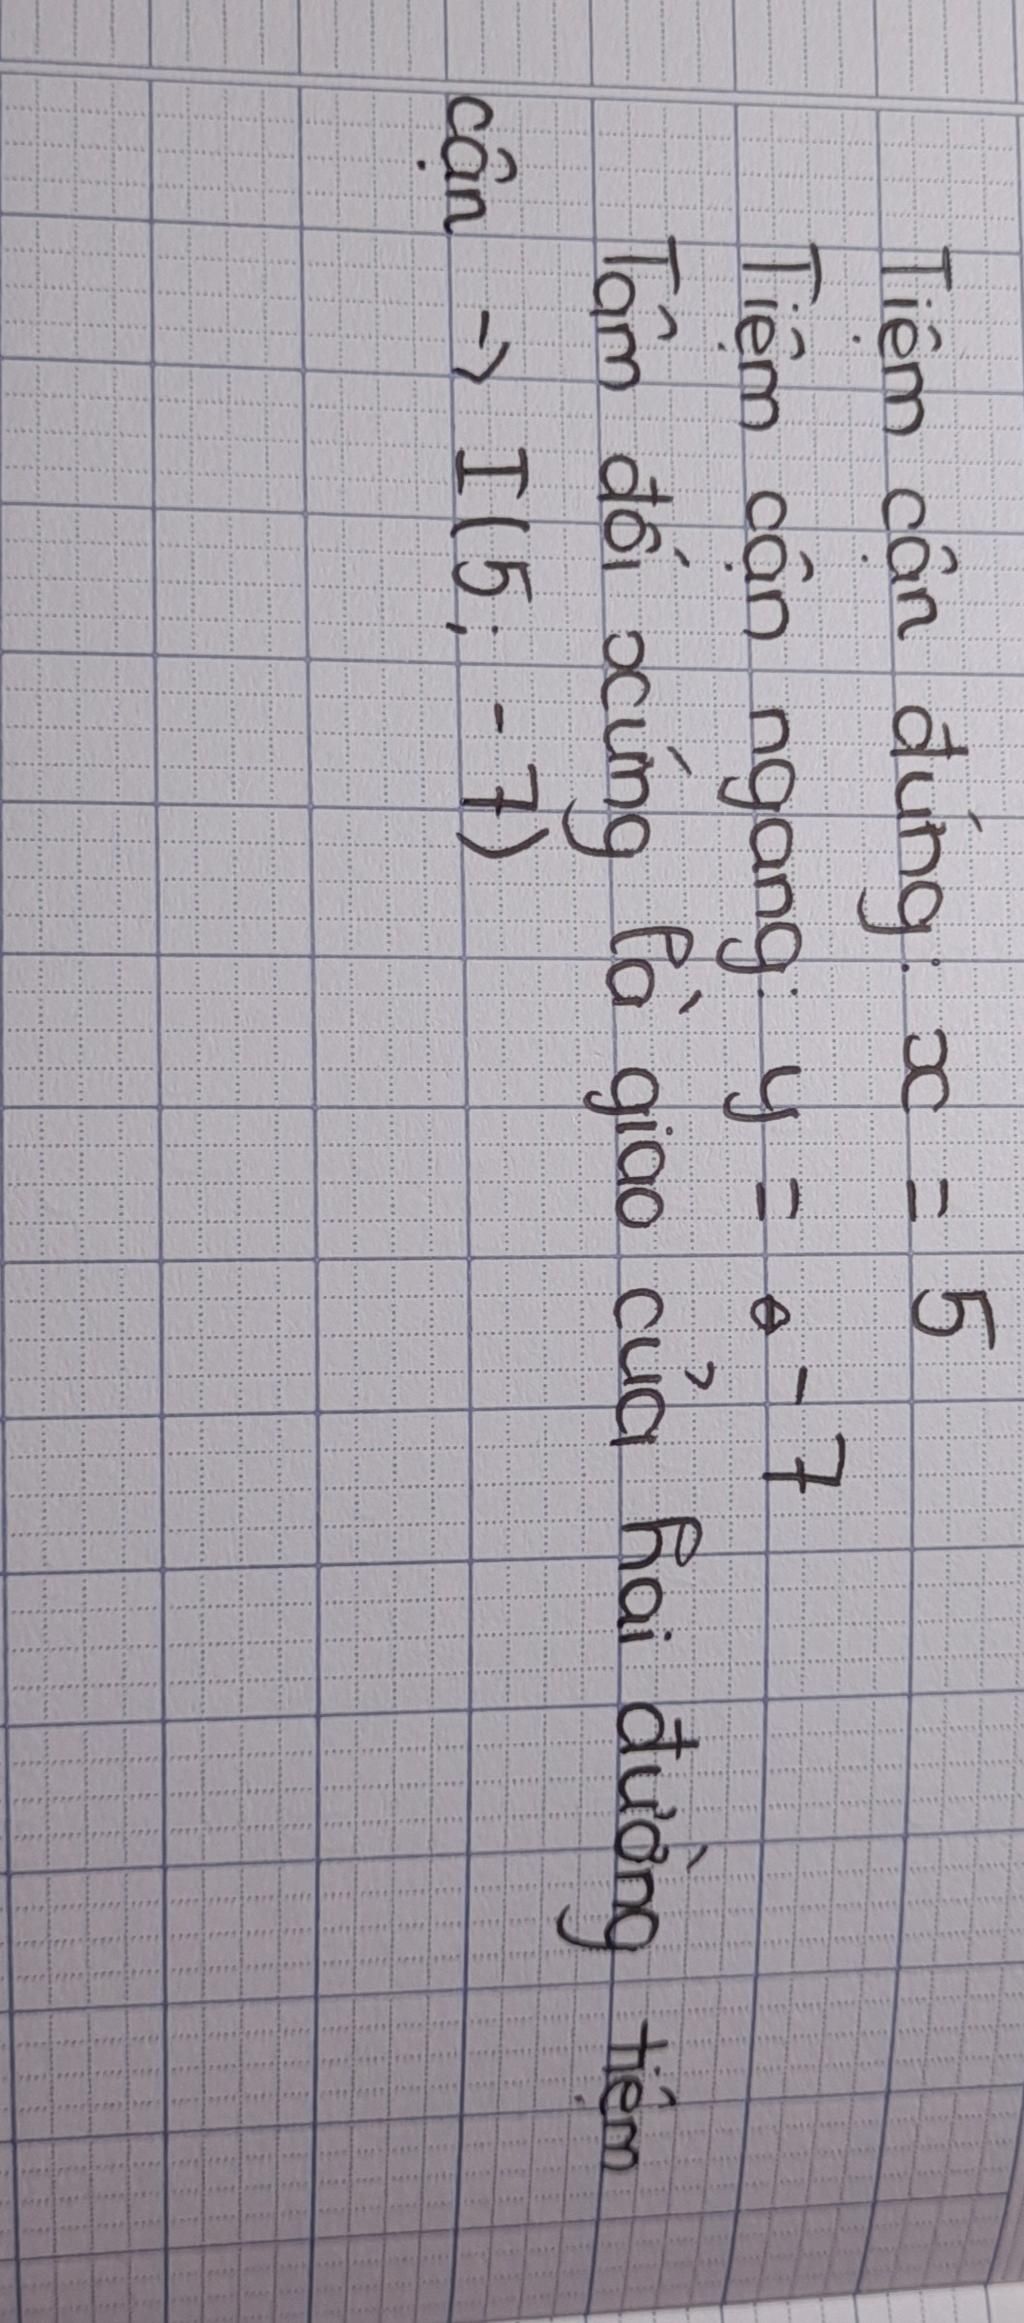 Tiệm cận đứng: x = 5
Tiệm cận ngang: y = -7
Tâm đối xứng là giao của hai đường tiệm
cận -> I(5; -7)